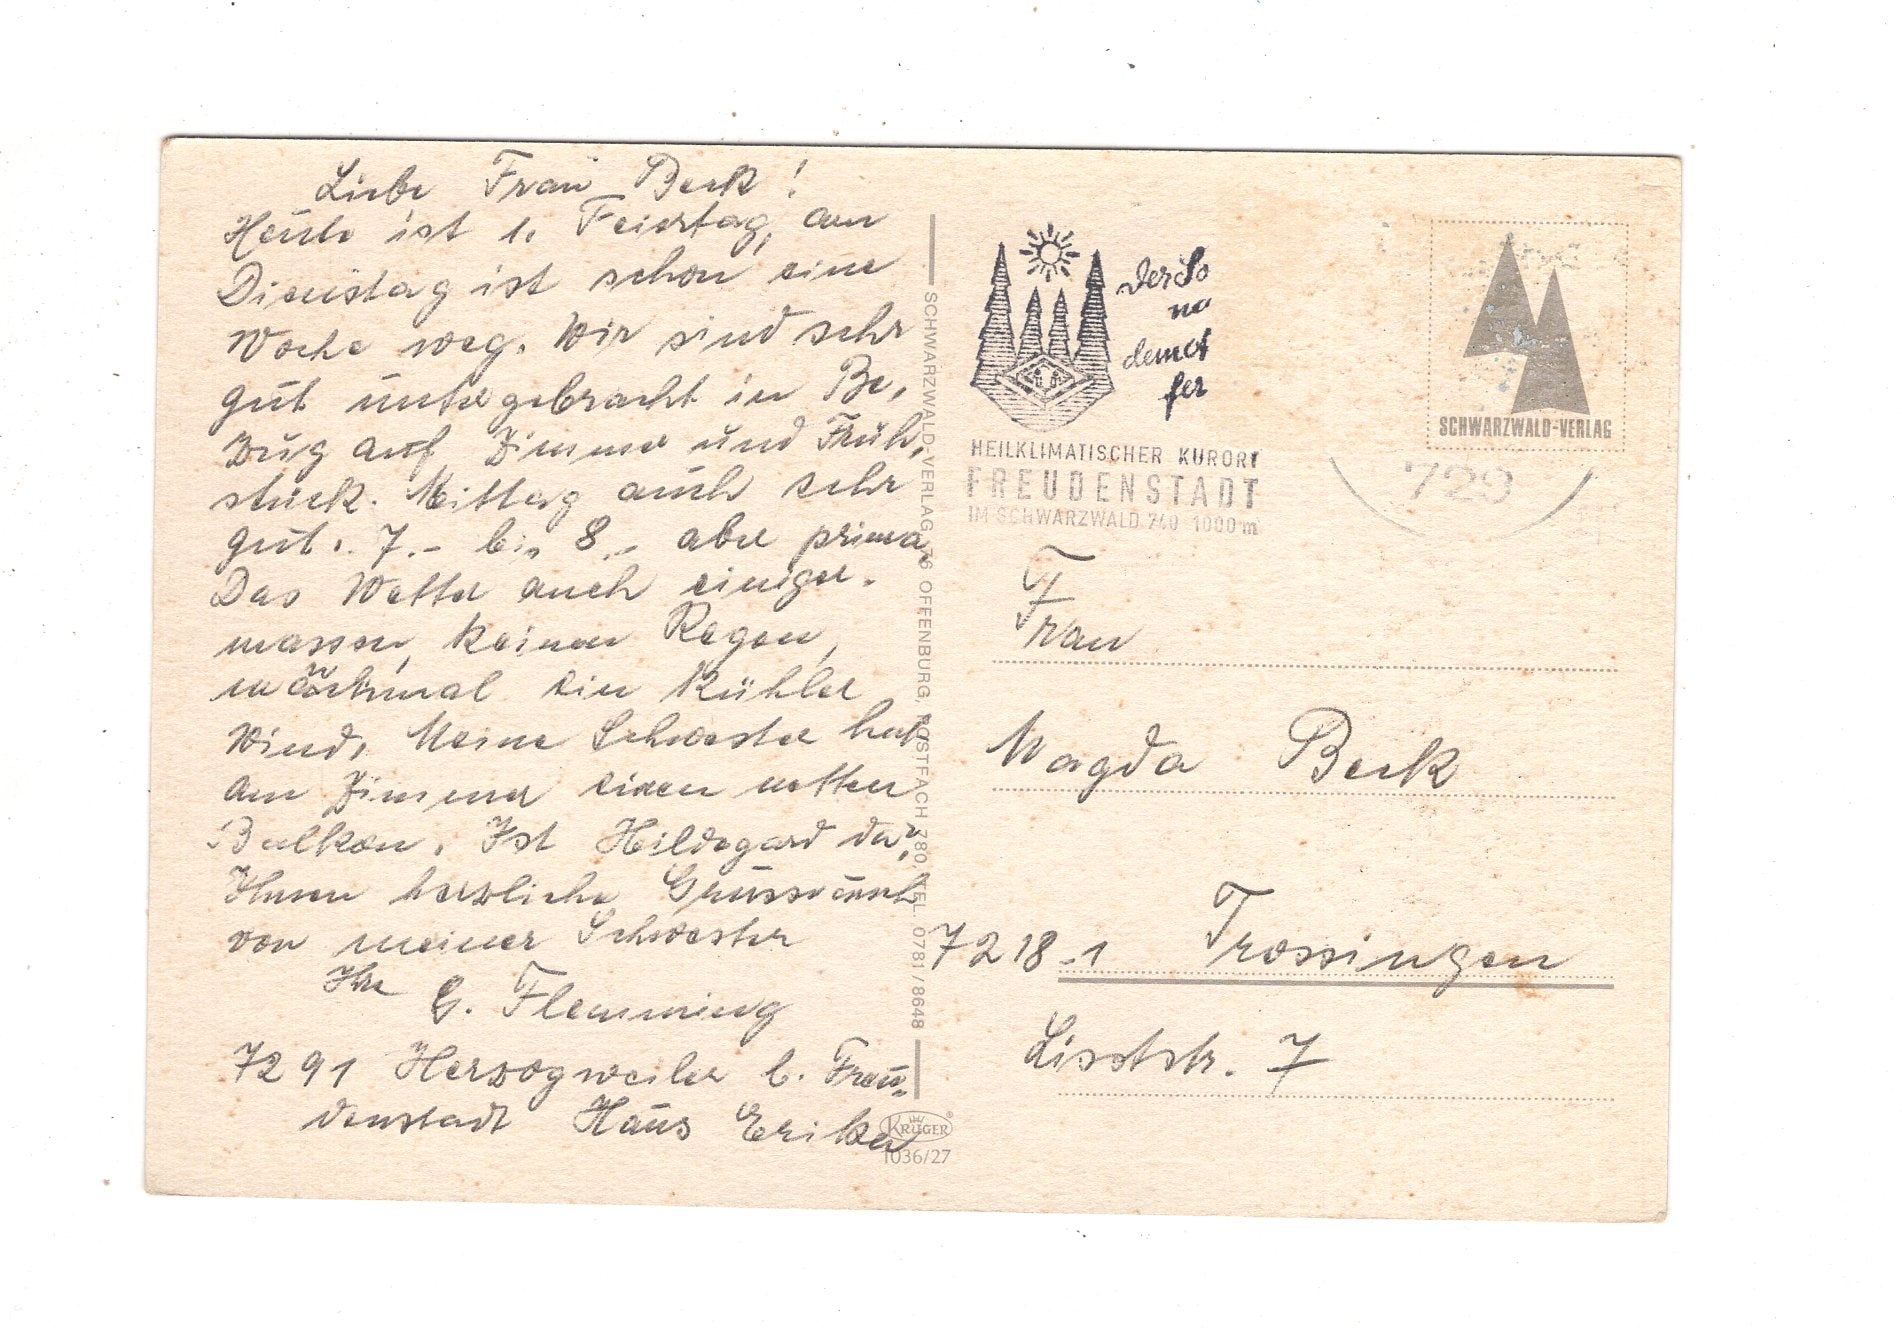 Liebe Frau Beck!
Heute ist 1. Feiertag, am
Dienstag ist schon eine
Woche weg. Wir sind sehr
gut untergebracht in Be,
zug auf Zimmer und Früh,
stück. Mittag auch sehr
gut. 7.- bis 8.- aber prima.
Das Wetter auch einiger.
massen, keinen Regen,
manchmal ein kühler
Wind, Meine Schwester hat
am Zimmer einen netten
Balkon. Ist Hildegard da?
Ihnen herzliche Grüsse auch
von meiner Schwester
Ihre G. Flemming
7291 Herzogweiler b. Freu=
denstadt Haus Erika
SCHWARZWALD-VERLAG, 76 OFFENBURG, POSTFACH 780, TEL. 0781/8648
KRÜGER
1036/27
HEILKLIMATISCHER KURORT
FREUDENSTADT
IM SCHWARZWALD 740 1000 m
SCHWARZWALD-VERLAG
729
Frau
Magda Beck
7218-1 Trossingen
Lisztstr. 7